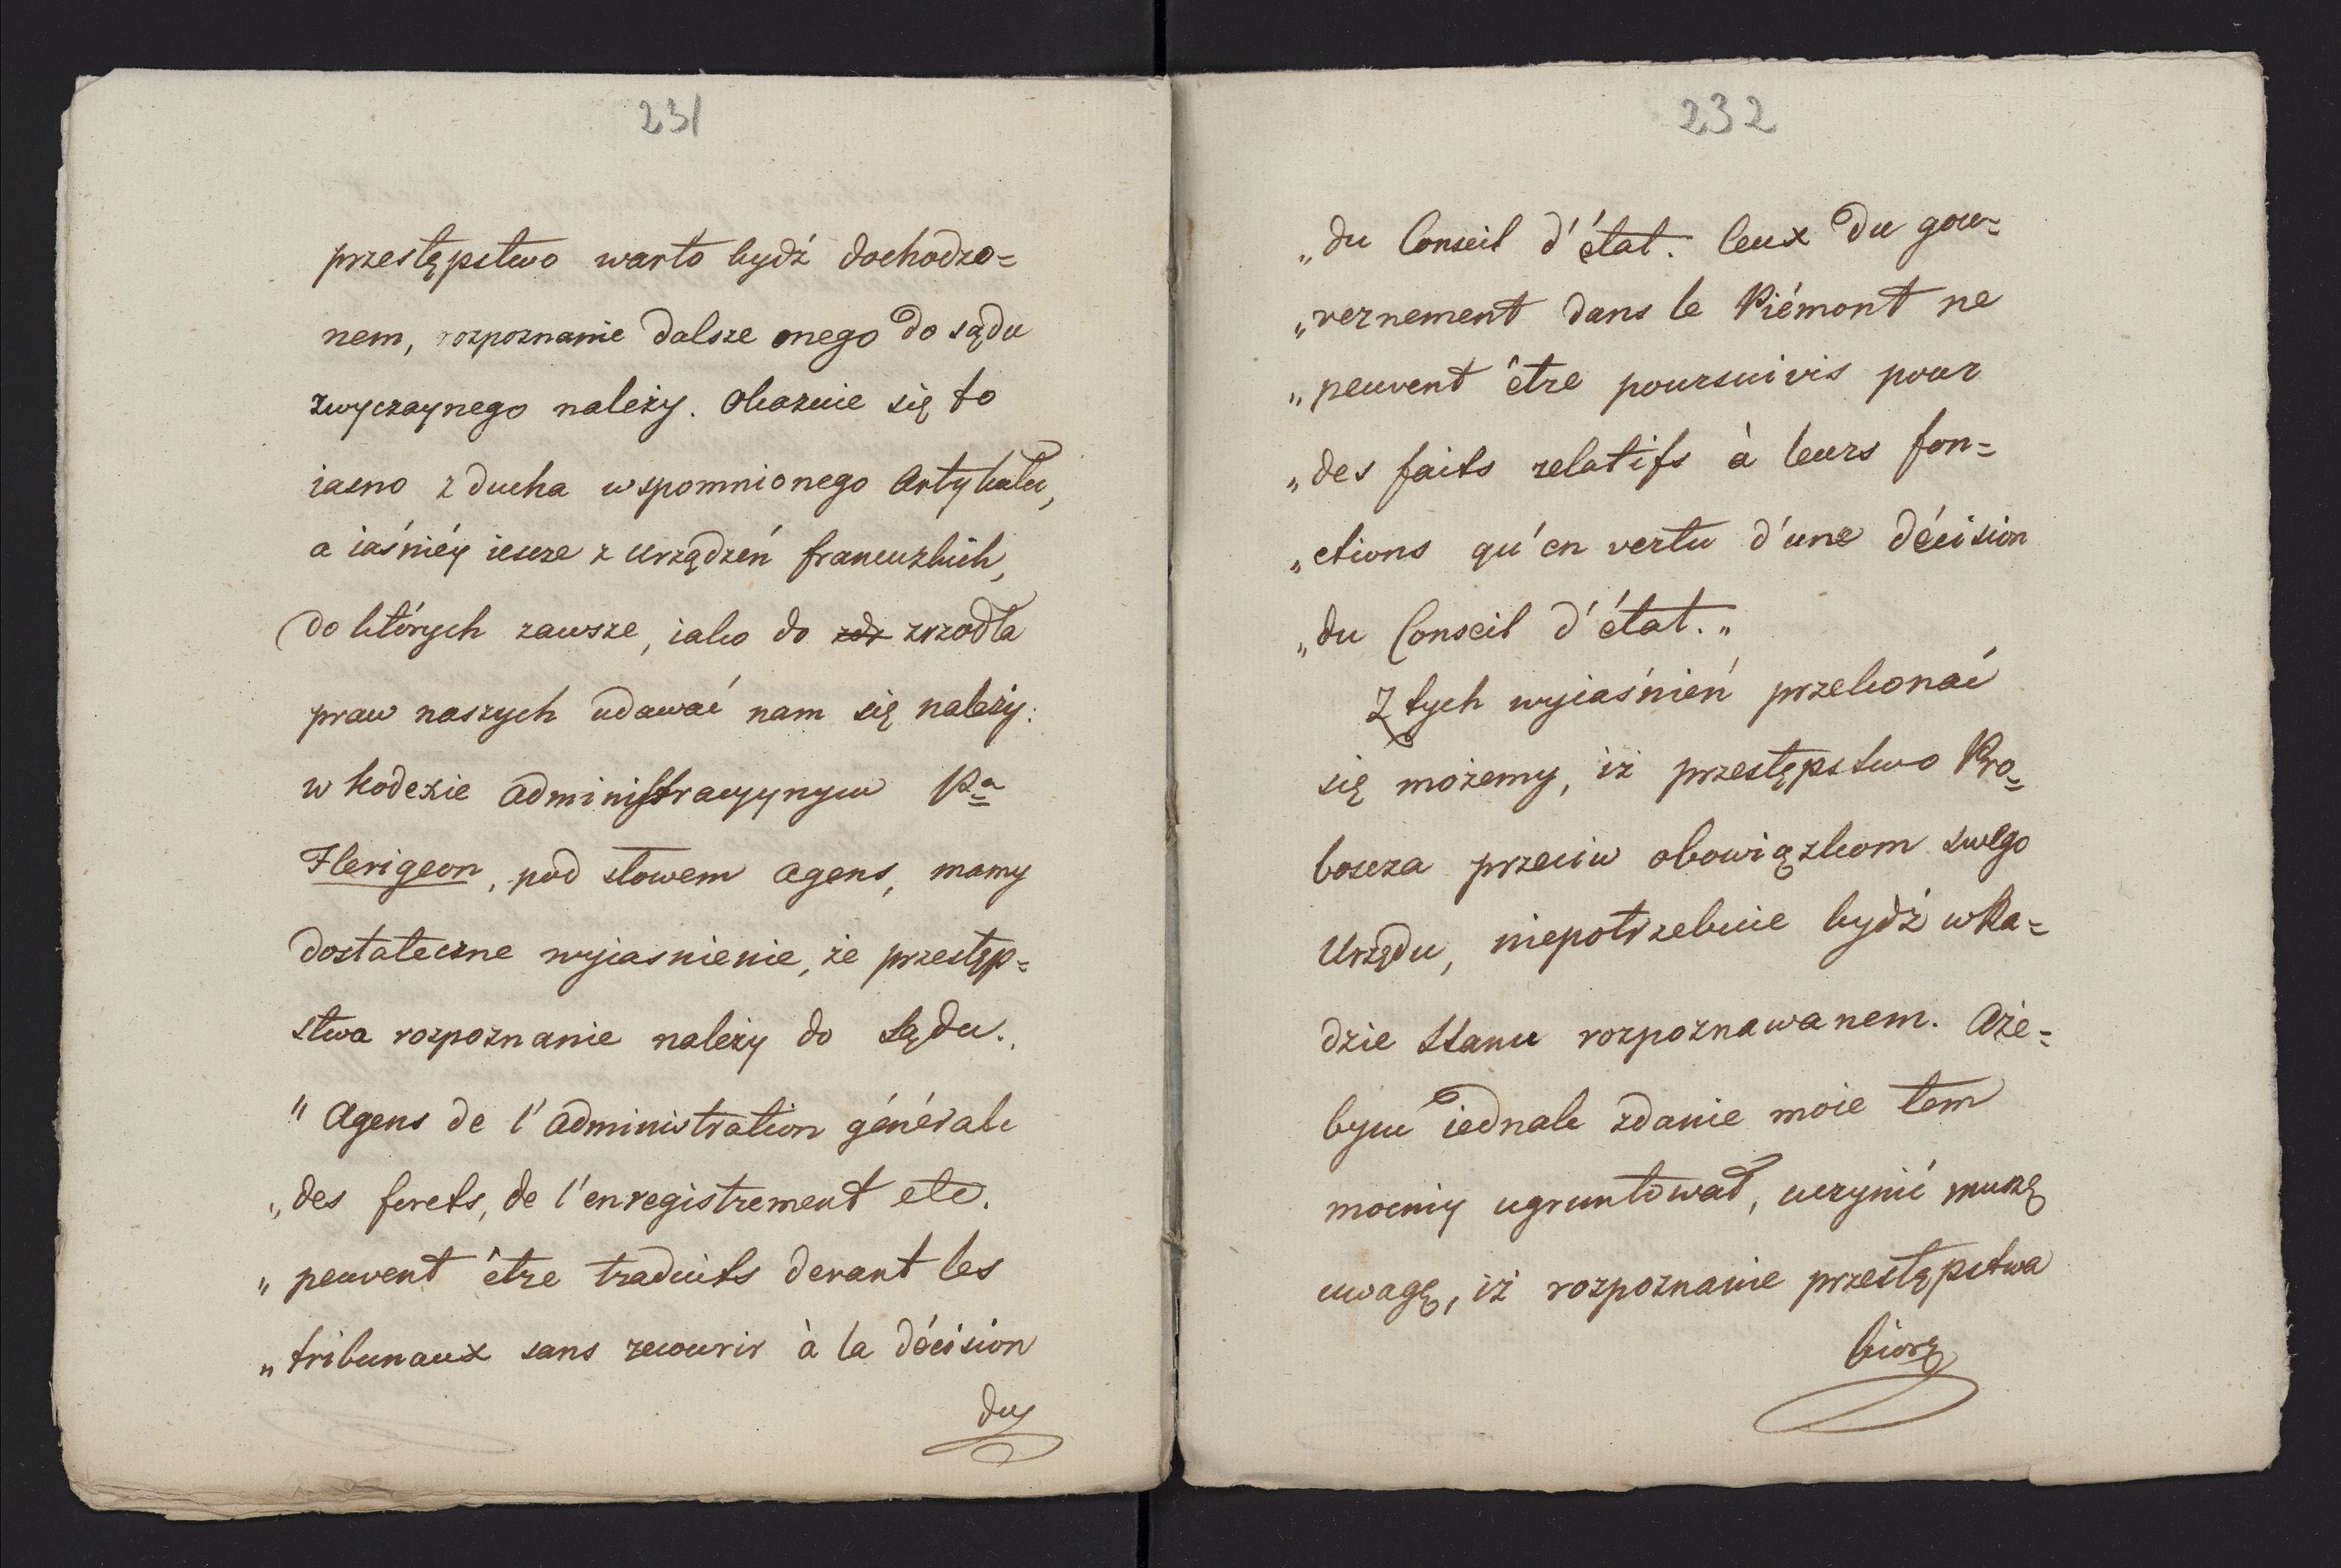 231
przestępstwo warto bydź dochodzo=
nem, rozpoznanie dalsze onego do sądu
zwyczaynego należy. Okazuie się to
iasno z ducha wspomnionego Artykułu,
a iaśniéy iescze z urządzeń francuzkich,
do których zawsze, iako do zdr zrzodła
praw naszych udawać nam się należy:
w kodexie administracyynym Pa
Flerigeon, pod słowem agens, mamy
dostateczne wyiasnienie, że przestęp=
stwa rozpoznanie należy do sądu.
" Agens de l'administration générale
„ des forets, de l'enregistrement etc.
„ peuvent être traduits devant les
„ tribunaux sans recourir à la décision
du
232
„ du Conseil d'état. Ceux du gou=
„ vernement dans le Piémont ne
„ peuvent être poursuivis pour
„ des faits relatifs à leurs fon=
„ ctions qu'en vertu d'une décision
„ du Conseil d'état. „
Z tych wyiaśnień przekonać
się możemy, iż przestępstwo Pro=
boscza przeciw obowiązkom swego
Urzędu, niepotrzebuie bydź w Ra=
dzie Stanu rozpoznawanem. Aże=
bym iednak zdanie moie tem
mocniy ugruntował, uczynić muszę
uwagę, iż rozpoznanie przestępstwa
biorę